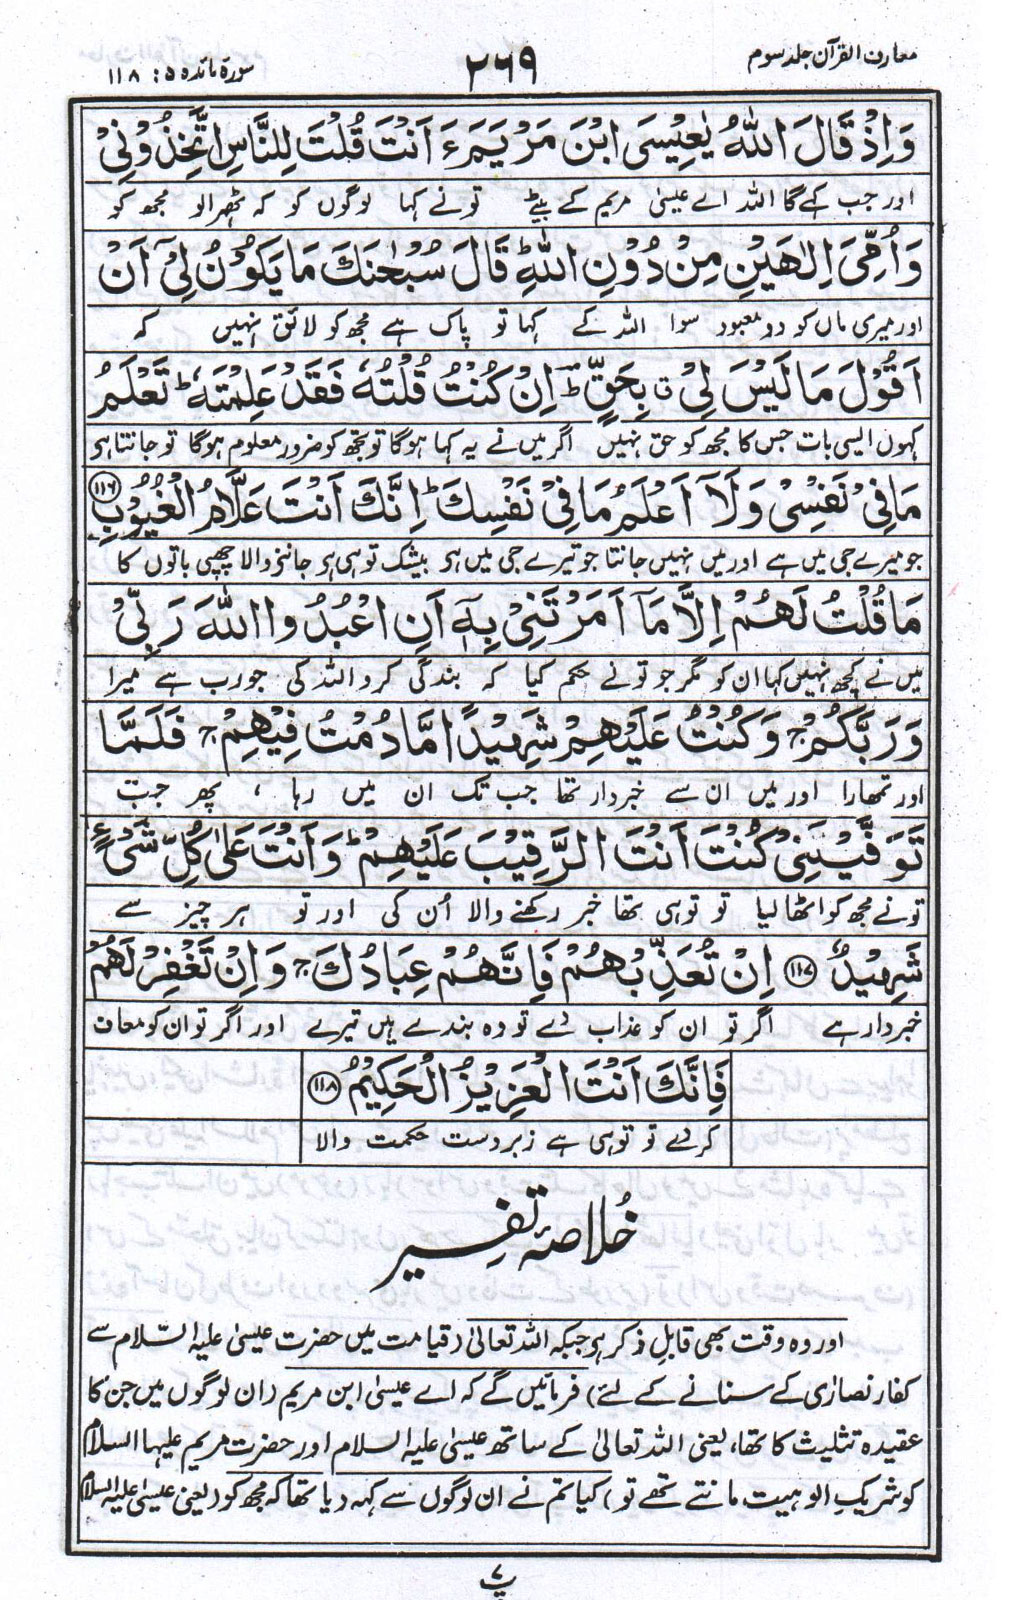 معارف القرآن جلد سوم
۲۶۹
سورۂ مائدہ ۵: ۱۱۸
وَاِذْ قَالَ اللّٰهُ يٰعِيْسَى ابْنَ مَرْيَمَ ءَاَنْتَ قُلْتَ لِلنَّاسِ اتَّخِذُوْنِيْ
اور جب کہے گا اللہ اے عیسیٰ مریم کے بیٹے تو نے کہا لوگوں کو کہ ٹھہرا لو مجھ کو
وَاُمِّيَ اِلٰهَيْنِ مِنْ دُوْنِ اللّٰهِ ؕ قَالَ سُبْحٰنَكَ مَا يَكُوْنُ لِيْٓ اَنْ
اور میری ماں کو دو معبود سوا اللہ کے کہا تو پاک ہے مجھ کو لائق نہیں کہ
اَقُوْلَ مَا لَيْسَ لِيْ ۤ بِحَقٍّ ؕ اِنْ كُنْتُ قُلْتُهٗ فَقَدْ عَلِمْتَهٗ ؕ تَعْلَمُ
کہوں ایسی بات جس کا مجھ کو حق نہیں اگر میں نے یہ کہا ہوگا تو تجھ کو ضرور معلوم ہوگا تو جانتا ہی
مَا فِيْ نَفْسِيْ وَلَآ اَعْلَمُ مَا فِيْ نَفْسِكَ ؕ اِنَّكَ اَنْتَ عَلَّامُ الْغُيُوْبِ ۝۱۱۶
جو میرے جی میں ہے اور میں نہیں جانتا جو تیرے جی میں ہی بیشک تو ہی ہی جاننے والا چھپی باتوں کا
مَا قُلْتُ لَهُمْ اِلَّا مَآ اَمَرْتَنِيْ بِهٖٓ اَنِ اعْبُدُوا اللّٰهَ رَبِّيْ
میں نے کچھ نہیں کہا ان کو مگر جو تو نے حکم کیا کہ بندگی کرو اللہ کی جو رب ہے میرا
وَرَبَّكُمْ ۚ وَكُنْتُ عَلَيْهِمْ شَهِيْدًا مَّا دُمْتُ فِيْهِمْ ۚ فَلَمَّا
اور تمھارا اور میں ان سے خبردار تھا جب تک ان میں رہا ، پھر جب
تَوَفَّيْتَنِيْ كُنْتَ اَنْتَ الرَّقِيْبَ عَلَيْهِمْ ؕ وَاَنْتَ عَلٰى كُلِّ شَيْءٍ
تو نے مجھ کو اٹھا لیا تو تو ہی تھا خبر رکھنے والا اُن کی اور تو ہر چیز سے
شَهِيْدٌ ۝۱۱۷ اِنْ تُعَذِّبْهُمْ فَاِنَّهُمْ عِبَادُكَ ۚ وَاِنْ تَغْفِرْ لَهُمْ
خبردار ہے اگر تو ان کو عذاب دے تو وہ بندے ہیں تیرے اور اگر تو ان کو معاف
فَاِنَّكَ اَنْتَ الْعَزِيْزُ الْحَكِيْمُ ۝۱۱۸
کر دے تو تو ہی ہے زبردست حکمت والا
خُلاصۂ تفسیر
اور وہ وقت بھی قابلِ ذکر ہی جبکہ اللہ تعالیٰ (قیامت میں حضرت عیسیٰ علیہ السّلام سے
کفار نصارٰی کے سنانے کے لئے) فرمائیں گے کہ اے عیسیٰ ابن مریم (ان لوگوں میں جن کا
عقیدہ تثلیث کا تھا، یعنی اللہ تعالیٰ کے ساتھ عیسیٰ علیہ السلام اور حضرت مریم علیہا السلام
کو شریک الوہیت مانتے تھے تو) کیا تم نے ان لوگوں سے کہہ دیا تھا کہ مجھ کو (یعنی عیسیٰ علیہ السلام